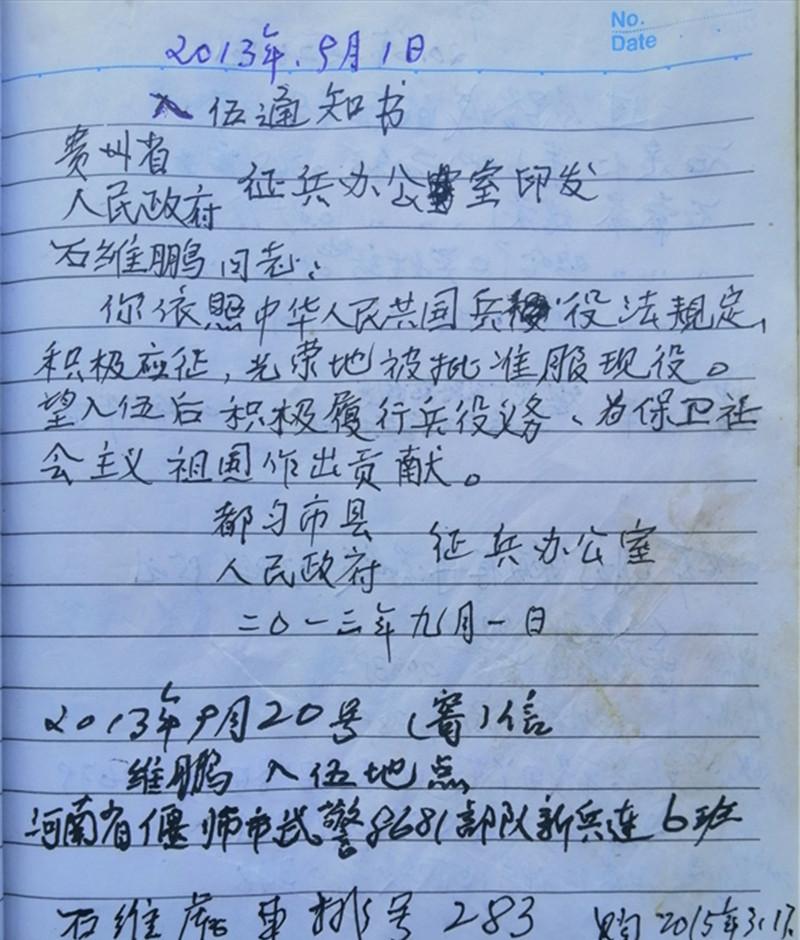 No.
Date
2013年.9月1日
入伍通知书
贵州省
人民政府 征兵办公室印发
石维鹏同志：
你依照中华人民共国兵役法规定,
积极应征,光荣地被批准服现役。
望入伍后积极履行兵役义务、为保卫社
会主义祖国作出贡献。
都匀市县
人民政府 征兵办公室
二0一三年九月一日
2013年9月20号(寄)信
维鹏入伍地点
河南省偃师市武警8681部队新兵连6班
石维 车排号283 购2015年3.17.